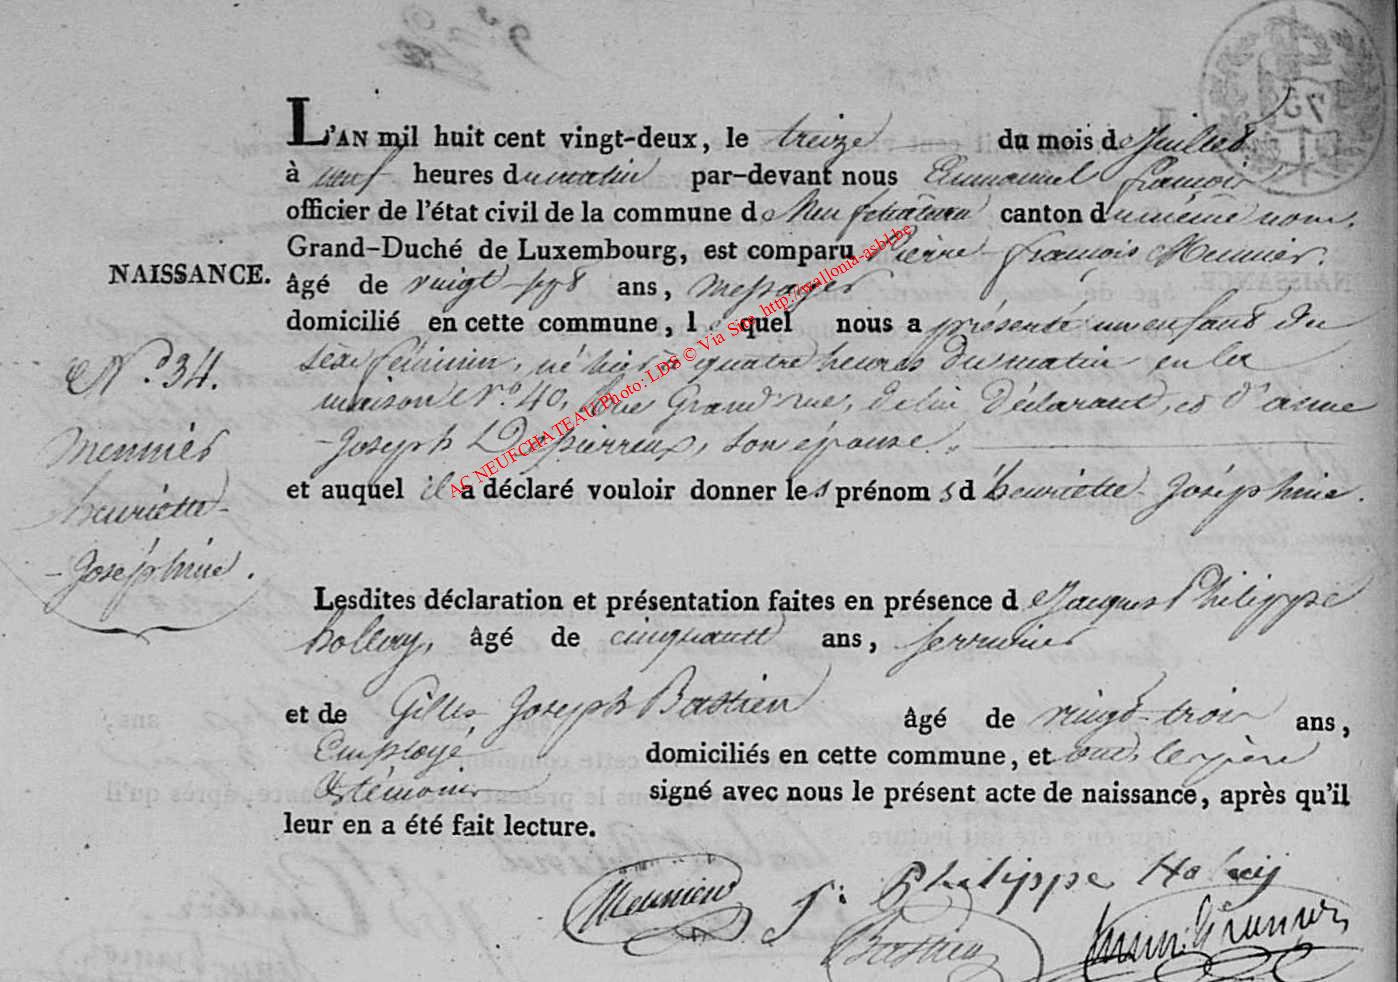 L'AN mil huit cent vingt-deux, le treize du mois de Juillet
à neuf heures du matin par-devant nous Emmanuel françois
officier de l'état civil de la commune de Neufchâteau canton du même nom,
Grand-Duché de Luxembourg, est comparu Pierre françois Meunier,
NAISSANCE.
âgé de vingt-sept ans, messager
domicilié en cette commune, lequel nous a présenté un enfant du
sexe féminin, né hier à quatre heures du matin en la
maison N.º 40, Rue Grand'rue, de lui Déclarant, et d'anne
Joseph Depierreux, son épouse.
et auquel il a déclaré vouloir donner les prénoms d'henriette Joséphine.
N.º 34.
Meunier
henriette
Joséphine.
Lesdites déclaration et présentation faites en présence de Jacques Philippe
âgé de cinquante ans, serrurier
et de Gilles Joseph Bastien âgé de vingt-trois ans,
Employé domiciliés en cette commune, et ont le père
et témoins signé avec nous le présent acte de naissance, après qu'il
leur en a été fait lecture.
Meunier
J: Philippe
Bastien
AC NEUFCHATEAU Photo: LDS © Via Site http://wallonia-asbl.be
75